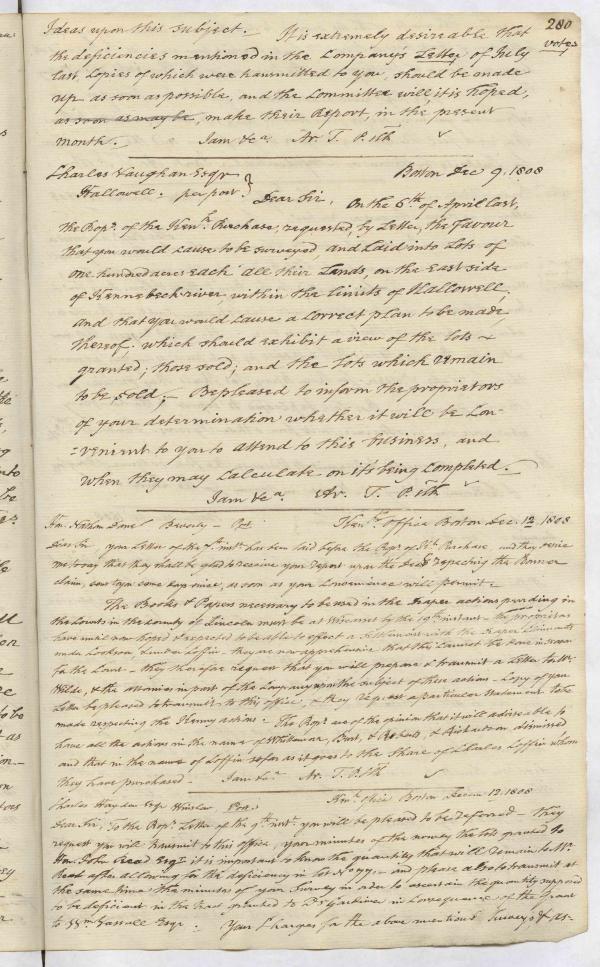 280
votes
Ideas upon this subject. It is extremely desireable that
the deficiencies mentioned in the Company's Letter of July
last, Copies of which were transmitted to you, should be made
up as soon as possible, and the Committee will, it is hoped,
as soon as may be, make their Report, in the present
month. I am &ca. Ar. T. P. Clk
Charles Vaughan Esqr
Hallowell. per post. } Boston Dec 9. 1808
Dear Sir, On the 6th of April last,
the Propr. of the Kenn. Purchase, requested by Letter, the favour
that you would cause to be surveyed, and Laid into Lots of
one hundred acres each all their Lands, on the east side
of Kennebeck river, within the limits of Hallowell,
and that you would cause a correct plan to be made,
thereof, which should exhibit a view of the lots
granted; those sold; and the lots which remain
to be sold; - Be pleased to inform the proprietors
of your determination whether it will be Con-
=venient to you to attend to this business, and
when they may calculate on it's being completed.
I am &ca. Ar. T. P. Clk
Hon. Nathan Dane Beverly - Kenn. Office Boston Dec. 12 1808
Dear Sir your Letter of the 7th inst. has been laid before the Propr. of K. Purchase, and they desire
me to say that they shall be glad to receive your report upon the respecting the Bonner
claim, as soon as your Convenience will permit -
The Books & Papers necessary to be used in the actions pending in
the Courts in the County of Lincoln must be at Wiscasset by the 19th instant - the proprietors
have until now hoped & expected to be able to effect a settlement with the Claimants
under - they are now apprehensive that this cannot be done in season
for the Court - they therefore request that you will prepare & transmit a Letter to Mr.
Wilde, & the attornies in part of the Company upon the subject of these actions - Copy of your
Letter be pleased to transmit to this office, & they request a particular statement to be
made respecting the actions - The Propr. are of the opinion that it will adviseable to
have all the actions in the name of Whittemore, & Roberts, & Richardson dismissed
and that in the name of Coffin so far as it goes to the Share of Charles Coffin whom
they have purchased. I am &ca. Ar. T. P. Clk
Charles Hayden Esqr Winslow Kenn. office Boston Decem 12. 1808
Dear Sir, To the Propr. Letter of the 9th inst. you will be pleased to be referred - They
request you will transmit to this office, your minutes of the the lots granted to
Hon. John Read Esqr. it is important to know the quantity that will remain to Mr.
Read after allowing for the deficiency in lot - and please also to transmit at
the same time the minutes of your Survey in order to ascertain the quantity supposed
to be deficient in the tract granted to Dr. Gardiner in Consequence of the Grant
to Wm Vassall Esqr. Your Charges for the above mentioned Surveys, & as-